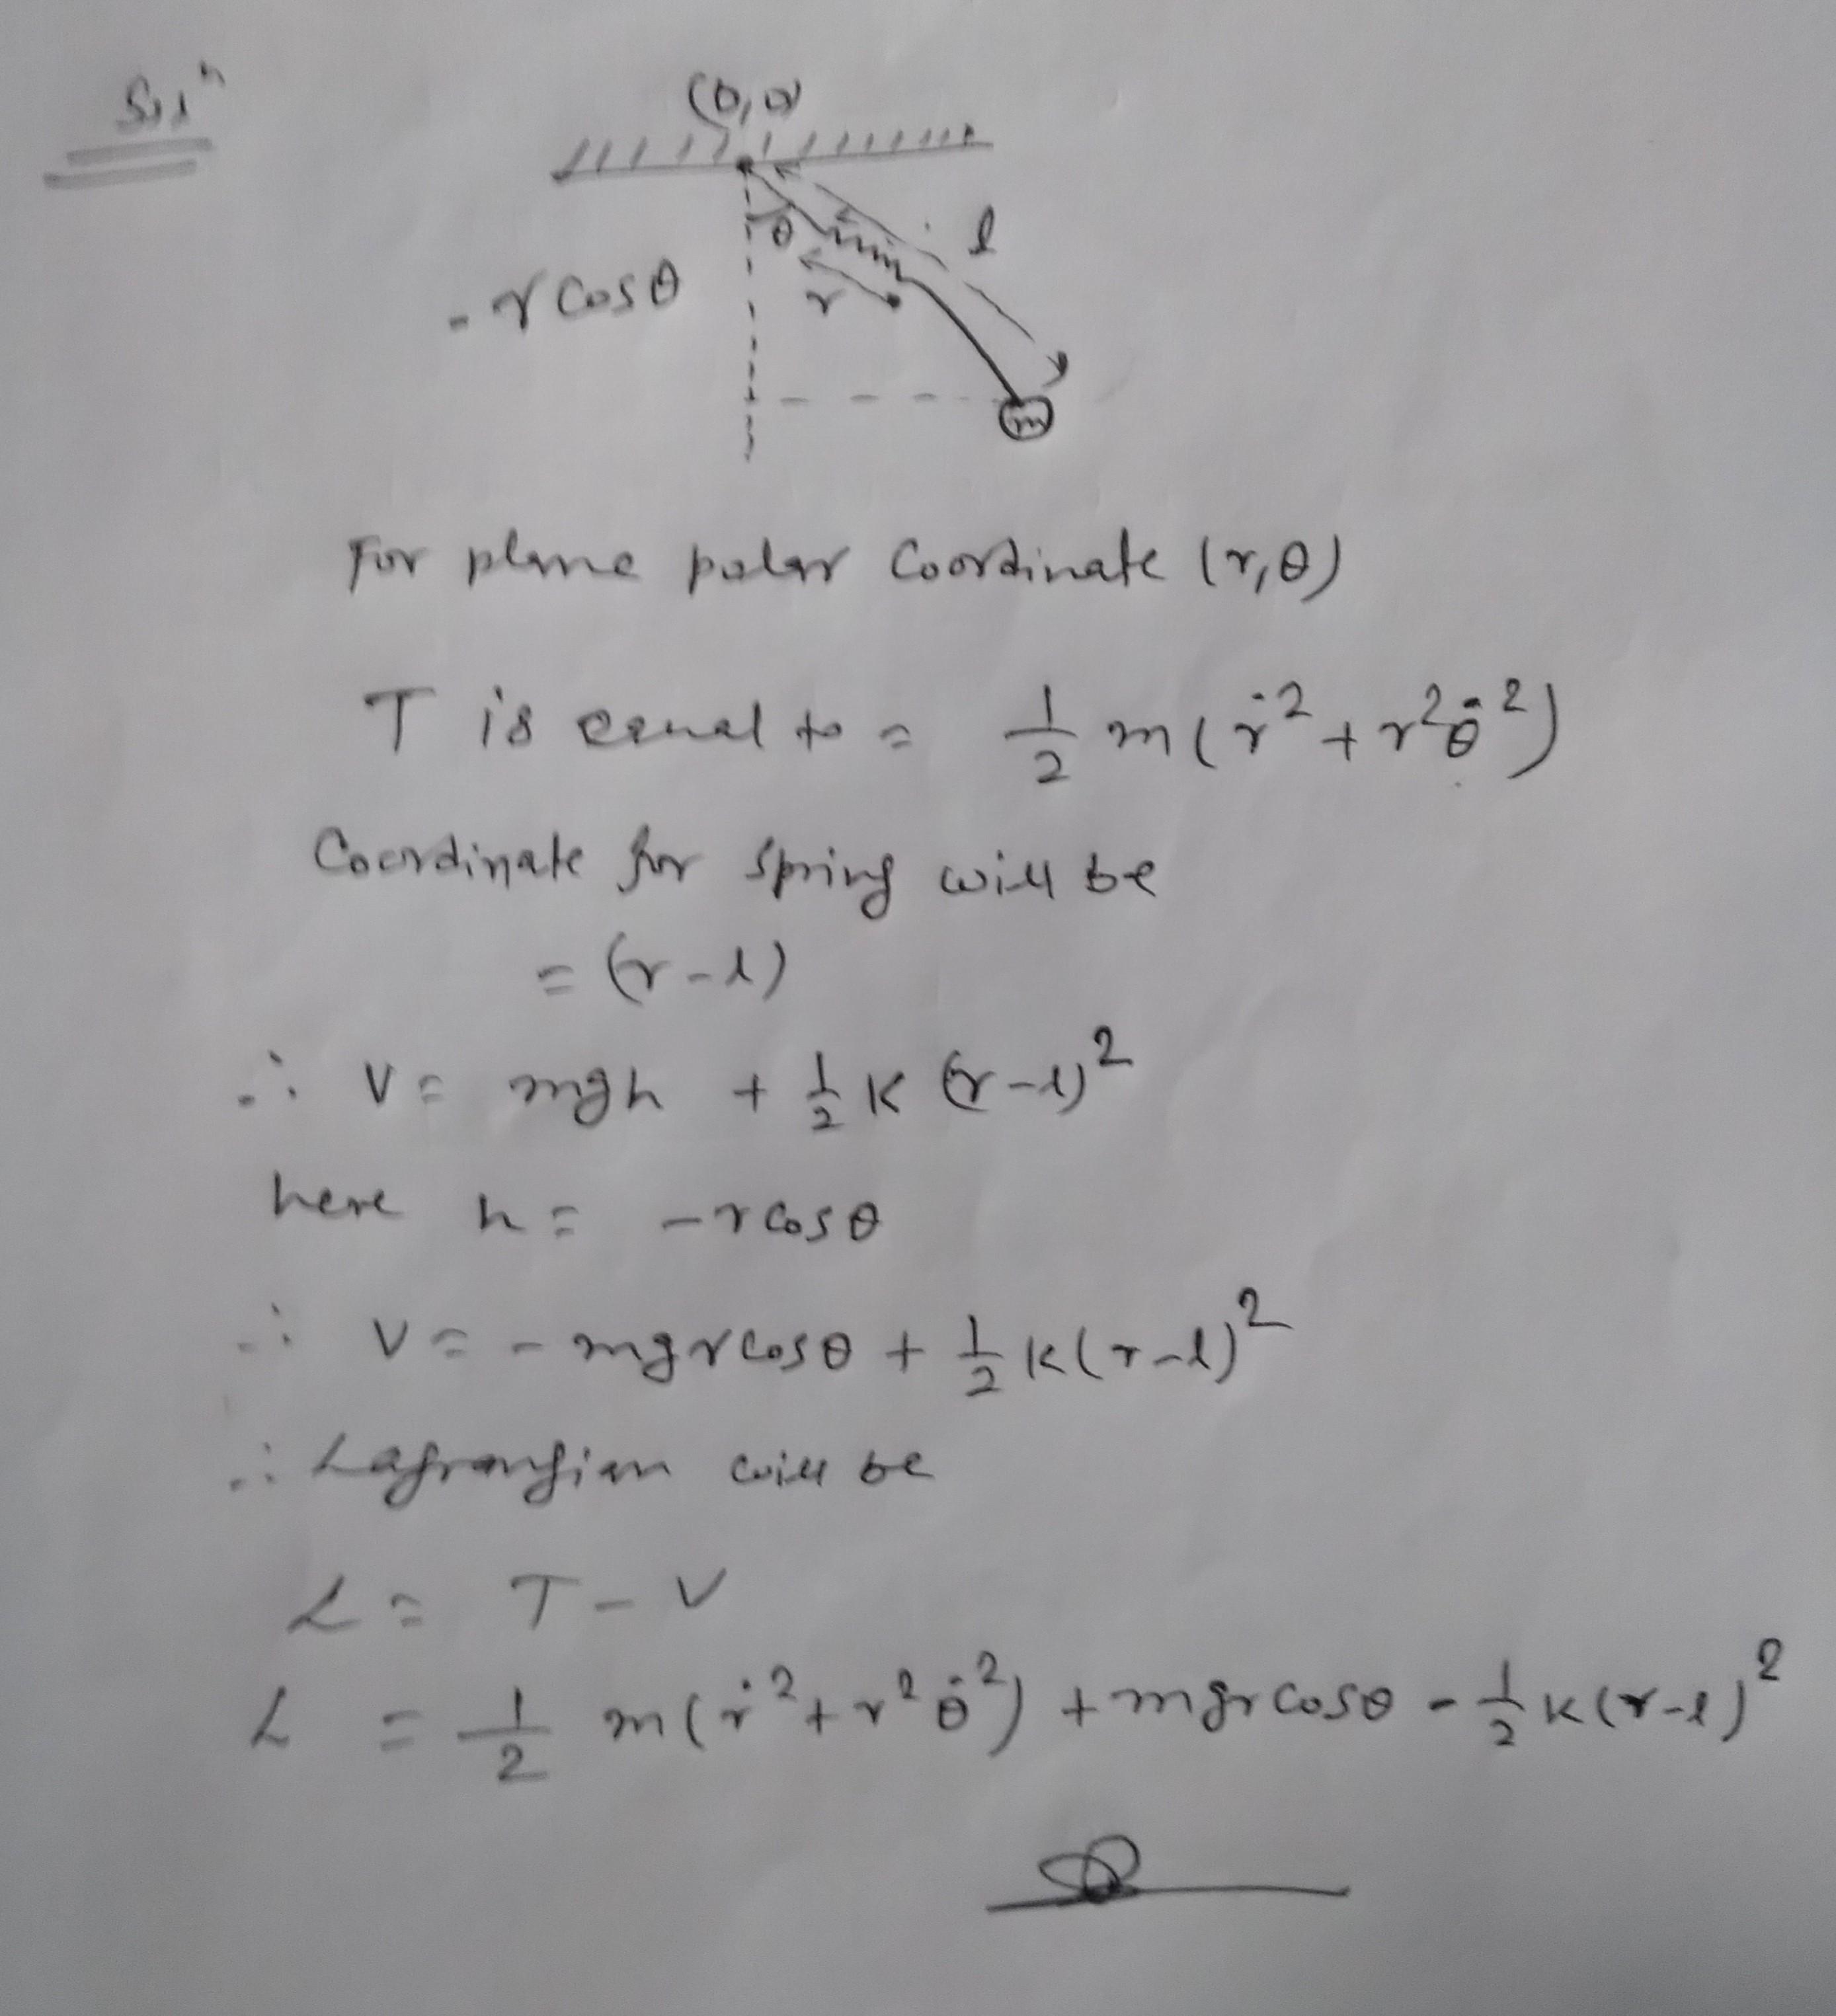 Solⁿ
(0,0)
θ
l
- r cosθ
r
m
For plane polar Coordinate (r,θ)
T is equal to = 1/2 m(ṙ² + r²θ̇²)
Coordinate for spring will be
= (r-l)
∴ V = mgh + 1/2 K (r-l)²
here h = -r cosθ
∴ V = - mgr cosθ + 1/2 K(r-l)²
∴ Lagrangian will be
L = T - V
L = 1/2 m(ṙ² + r²θ̇²) + mgr cosθ - 1/2 K(r-l)²